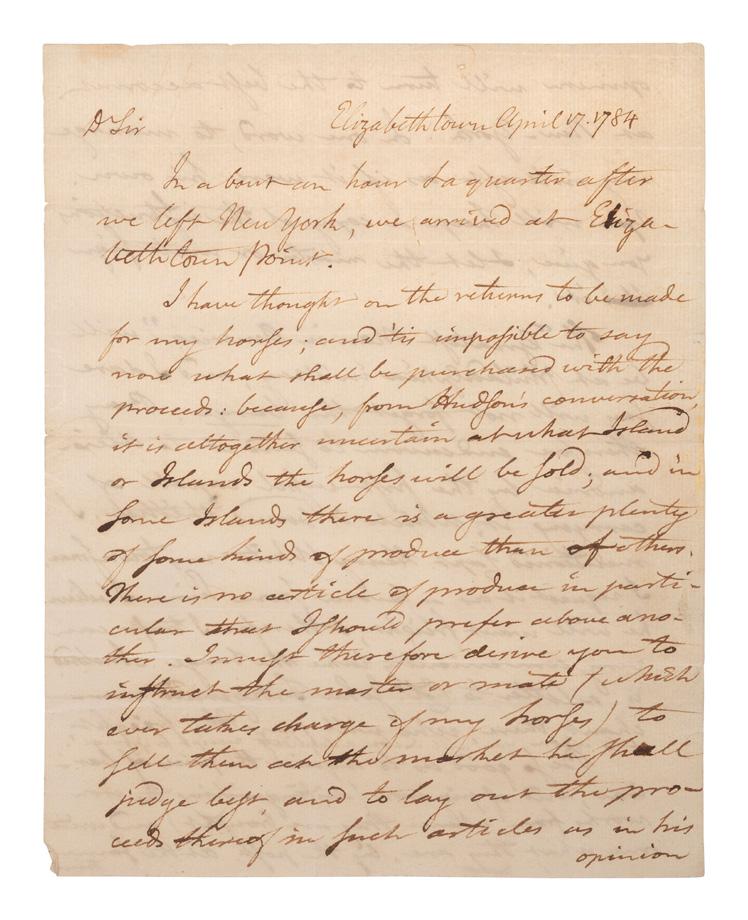 Dr Sir Elizabethtown April 17. 1784
In about an hour & a quarter after
we left New York, we arrived at Eliza-
bethtown Point.
I have thought on the returns to be made
for my horses; and 'tis impossible to say
now what shall be purchased with the
proceeds: because, from Hudson's conversation,
it is altogether uncertain at what Island
or Islands the horses will be sold; and in
some Islands there is a greater plenty
of some kinds of produce than of others.
There is no article of produce in parti-
cular that I should prefer above ano-
ther. I must therefore desire you to
instruct the master or mate (which
ever takes charge of my horses) to
sell them at the market he shall
judge best, and to lay out the pro-
ceeds thereof in such articles as in his
opinion